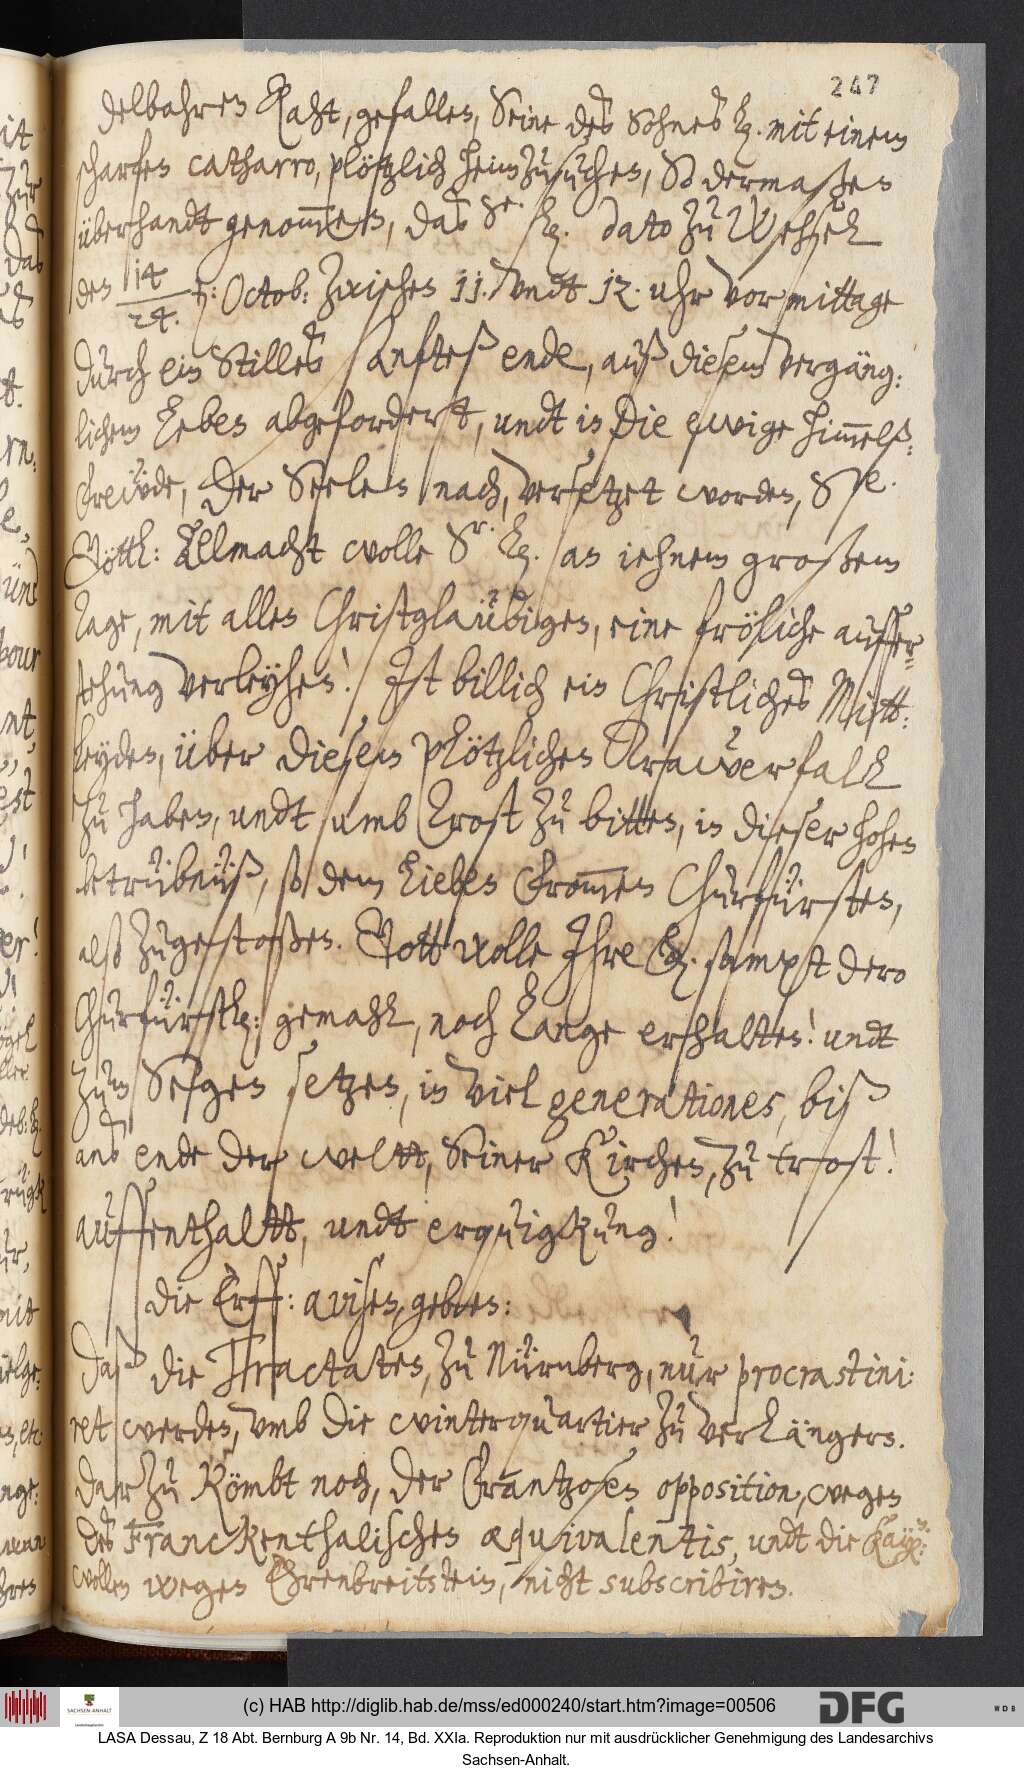 247
delbahren Raht, gefallen, Seine des Sohnes L. mit einem
scharfen catharro, plötzlich heimzusuchen, So dermaßen
überhandt genommen, das Sr. L. dato zu Wesel
den 14/24. : Octob: zwischen 11. vndt 12. uhr vormittage
durch ein Stilles sanftes ende, auß diesem vergäng:
lichem Leben abgefordert, undt in die ewige himmels:
Freüde, der Seelen nach, versetzet worden, Die
Göttl: Allmacht wolle Sr. L. an jehnem großem
Tage, mit allen Christglaübigen, eine fröliche auffer=
stehung verleyhen! Ist billich ein Christliches Mitt:
leyden, über diesem plötzlichen Trawerfall
zu haben, undt umb Trost zu bitten, in dieser hohen
betrübnüß, so dem Lieben frommen Churfürsten,
alß zugestoßen. Gott wolle Ihre L. sampt dero
Churfürstl: gemahl, noch lange erhalten! undt
zum Segen setzen, in viel generationes, biß
ans ende der weltt, Seiner Kirchen, zu trost!
auffenthaltt, undt erquigkung!
Die Erff: avisen, geben:
Daß die Tractaten, zu Nürnberg, nur procrastini:
ret werden, vmb die winterquartier zu verlängern.
Darzu kömbt noch, der Frantzosen opposition, wegen
des Franckenthalischen æquivalentis, undt die Kay:
wollen wegen Ehrenbreitstein, nicht subscribiren.
(c) HAB http://diglib.hab.de/mss/ed000240/start.htm?image=00506
SACHSEN-ANHALT
DFG
WDB
LASA Dessau, Z 18 Abt. Bernburg A 9b Nr. 14, Bd. XXIa. Reproduktion nur mit ausdrücklicher Genehmigung des Landesarchivs
Sachsen-Anhalt.